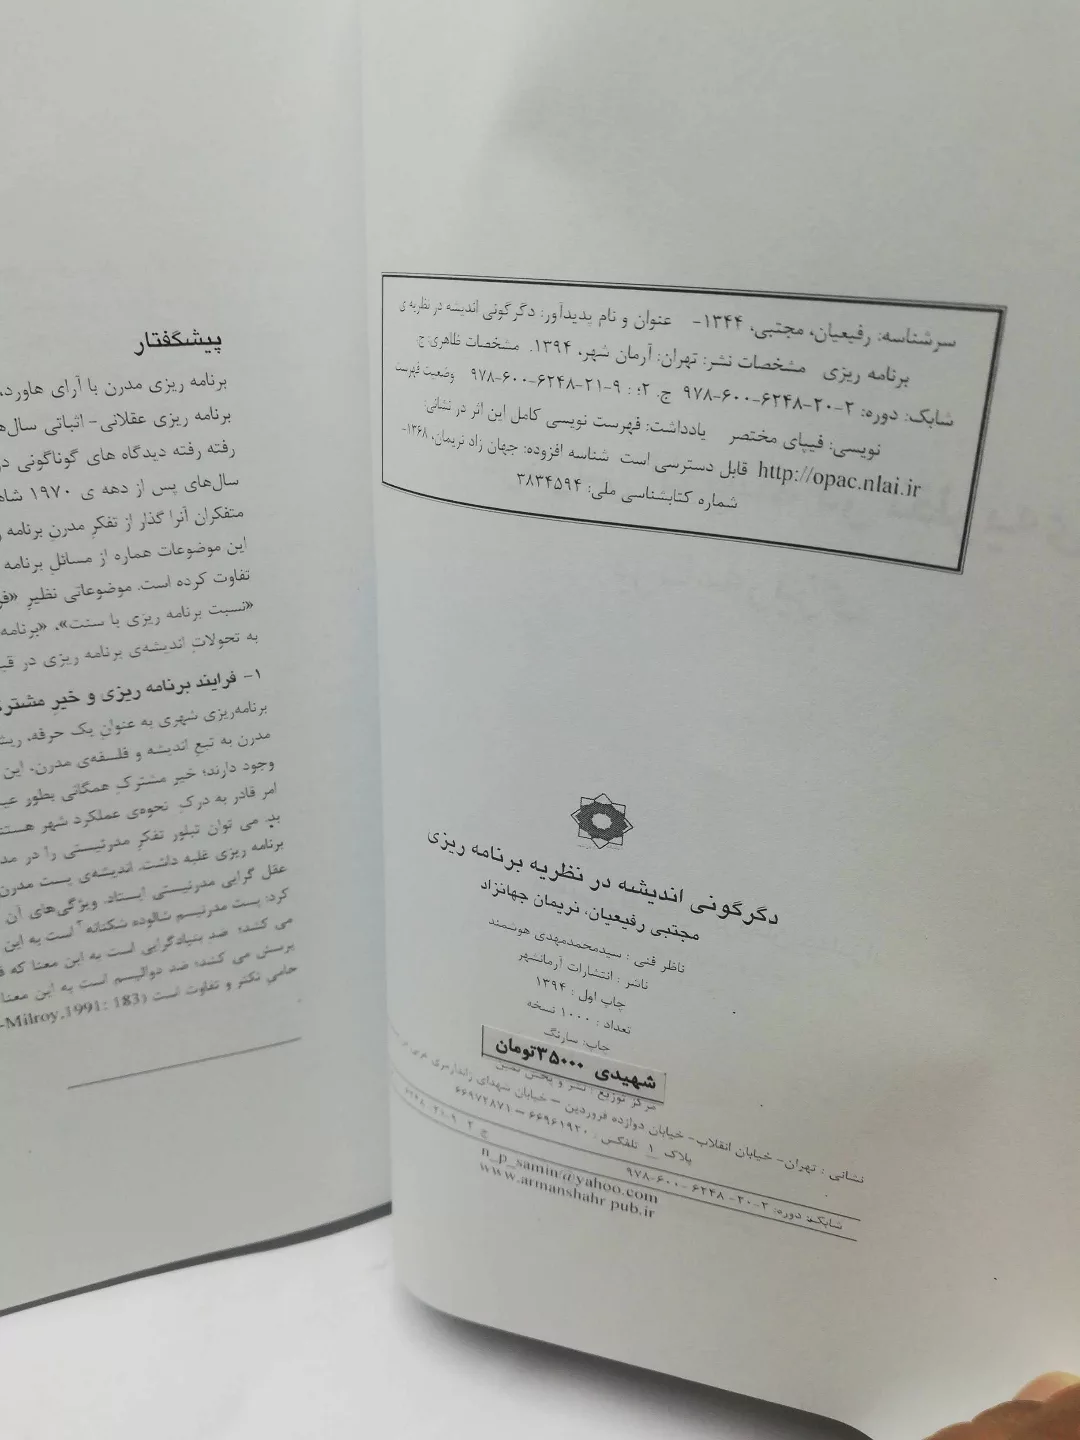 سرشناسه: رفیعیان، مجتبی، ۱۳۴۴- عنوان و نام پدیدآور: دگرگونی اندیشه در نظریه ی
برنامه ریزی مشخصات نشر: تهران: آرمان شهر، ۱۳۹۴. مشخصات ظاهری: ج
شابک: دوره: ۲-۲۰-۶۲۴۸-۶۰۰-۹۷۸ ج. ۲: ؛ ۹-۲۱-۶۲۴۸-۶۰۰-۹۷۸ وضعیت فهرست
نویسی: فیپای مختصر یادداشت: فهرست نویسی کامل این اثر در نشانی:
http://opac.nlai.ir قابل دسترسی است شناسه افزوده: جهان زاد نریمان، ۱۳۶۸-
شماره کتابشناسی ملی: ۳۸۳۴۵۹۴
دگرگونی اندیشه در نظریه برنامه ریزی
مجتبی رفیعیان، نریمان جهانزاد
ناظر فنی : سیدمحمدمهدی هوشمند
ناشر : انتشارات آرمانشهر
چاپ اول : ۱۳۹۴
تعداد : ۱۰۰۰ نسخه
چاپ: سارنگ
شهیدی ۳۵۰۰۰تومان
مرکز توزیع : نشر و پخش ثمین
نشانی : تهران- خیابان انقلاب- خیابان دوازده فروردین – خیابان شهدای ژاندارمری
پلاک ۱ تلفکس : ۶۶۹۶۱۹۲۰ – ۶۶۹۷۲۸۷۱
شابک: دوره: ۲-۲۰-۶۲۴۸-۶۰۰-۹۷۸ ج ۲ ۹-۲۱-۶۲۴۸
n_p_samin@yahoo.com
www.armanshahr pub.ir
پیشگفتار
برنامه ریزی مدرن با آرای هاورد،
برنامه ریزی عقلانی- اثباتی
رفته رفته دیدگاه های گوناگونی
سال‌های پس از دهه ی ۱۹۷۰
متفکران آنرا گذار از تفکرِ مدرنِ برنامه
این موضوعات همواره از مسائلِ برنامه
تفاوت کرده است. موضوعاتی نظیرِ
«نسبت برنامه ریزی با سنت»، «برنامه
به تحولاتِ اندیشه‌ی برنامه ریزی در
۱- فرایند برنامه ریزی و خیرِ
برنامه‌ریزی شهری به عنوان یک حرفه،
مدرن به تبعِ اندیشه و فلسفه‌ی مدرن، این
وجود دارند؛ خیرِ مشترکِ همگانی بطور
امر قادر به درکِ نحوه‌ی عملکرد شهر
می توان تبلور تفکرِ مدرنیستی را در
برنامه ریزی غلبه داشت. اندیشه‌ی پست مدرن
عقل گرایی مدرنیستی ایستاد. ویژگی‌های آن
کرد: پست مدرنیسم شالوده شکنانه۲ است به این
می کشد؛ ضد بنیادگرایی است به این معنا که
پرسش می کشد؛ ضد دوالیسم است به این
حامی تکثر و تفاوت است (Milroy,1991: 183